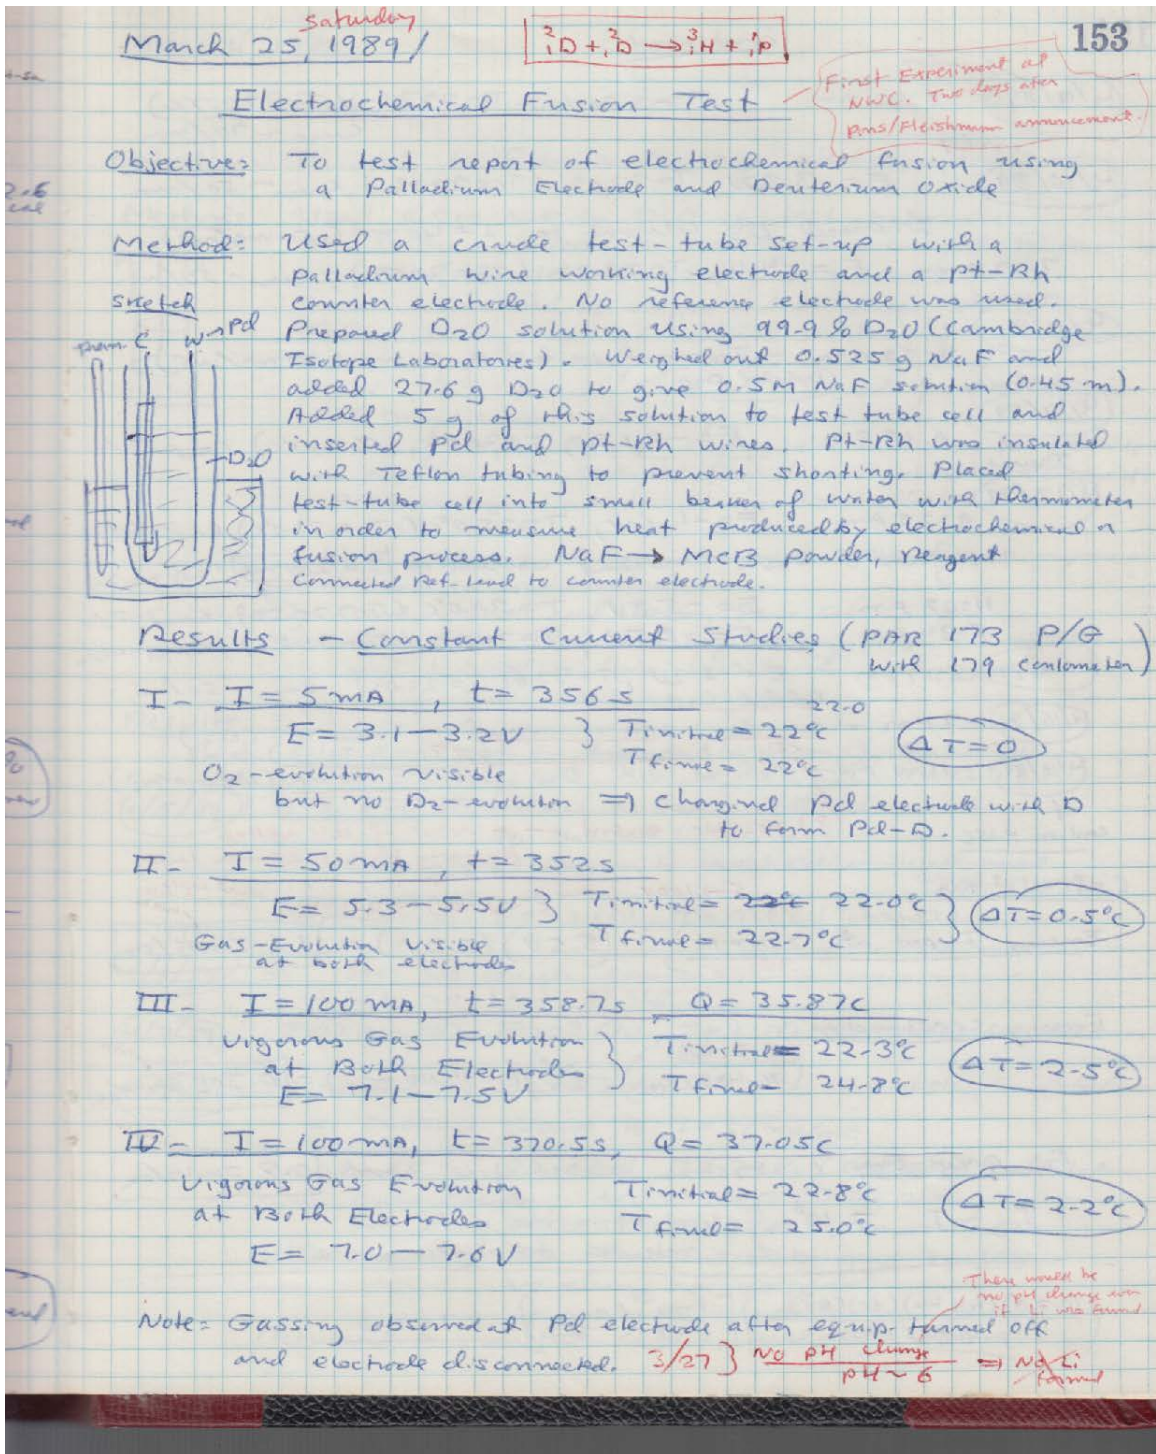 Saturday
March 25, 1989/
²₁D + ²₁D → ³₁H + ¹₁P
153
First Experiment at
NWC. Two days after
Pons/Fleishmann announcement.
Electrochemical Fusion Test
Objective: To test report of electrochemical fusion using
a Palladium Electrode and Deuterium Oxide
Method: Used a crude test-tube set-up with a
palladium wire working electrode and a Pt-Rh
counter electrode. No reference electrode was used.
Prepared D2O solution using 99.9% D2O (Cambridge
Isotope Laboratories). Weighed out 0.525 g NaF and
added 27.6 g D2O to give 0.5M NaF solution (0.45 m).
Added 5 g of this solution to test tube cell and
inserted Pd and Pt-Rh wires. Pt-Rh was insulated
with Teflon tubing to prevent shorting. Placed
test-tube cell into small beaker of water with thermometer
in order to measure heat produced by electrochemical
fusion process. NaF → MCB powder, reagent
Connected Ref. lead to counter electrode.
Sketch
C W→Pd
D2O
Results - Constant Current Studies (PAR 173 P/G
with 179 coulometer)
I- I = 5mA, t = 356s
22.0
E = 3.1-3.2V } Tinitial = 22°C
ΔT=0
Tfinal = 22°C
O2-evolution visible
but no D2-evolution ⇒ charging Pd electrode with D
to form Pd-D.
II- I = 50mA, t = 352s
E = 5.3-5.5V } Tinitial = 22°C 22.0°C } ΔT=0.5°C
Tfinal = 22.7°C
Gas-Evolution visible
at both electrodes
III- I = 100mA, t = 358.7s Q = 35.87C
Vigorous Gas Evolution } Tinitial = 22.3°C
at Both Electrodes
ΔT=2.5°C
Tfinal = 24.8°C
E = 7.1-7.5V
IV- I = 100mA, t = 370.5s, Q = 37.05C
Vigorous Gas Evolution Tinitial = 22.8°C
at Both Electrodes Tfinal = 25.0°C
ΔT=2.2°C
E = 7.0-7.6V
There would be
no pH change even
if Li was formed
Note: Gassing observed at Pd electrode after equip. turned off
and electrode disconnected. 3/27 } No pH change ⇒ No Li
pH ~ 6 formed